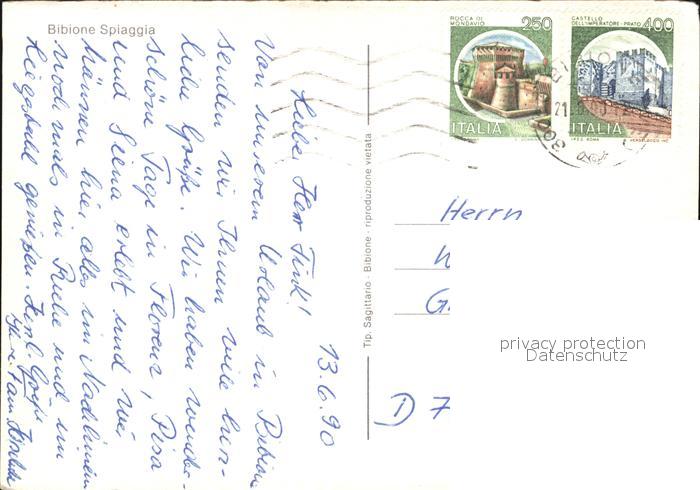 Bibione Spiaggia
13.6.90
Lieber Herr Fink!
Von unserem Urlaub in Bibione
senden wir Ihnen viele herz-
liche Grüße. Wir haben wunder-
schöne Tage in Florenz, Pisa
und Siena erlebt und wir
können hier alles im Nachhinein
nochmals in Ruhe und im
Liegestuhl genießen. Herzl. Grüße
Ihre Fam.
Tip. Sagittario - Bibione - riproduzione vietata
ROCCA DI
MONDAVIO
250
ITALIA
CASTELLO
DELL'IMPERATORE-PRATO
400
ITALIA
I.P.Z.S. ROMA
21
Herrn
G.
D 7
privacy protection
Datenschutz